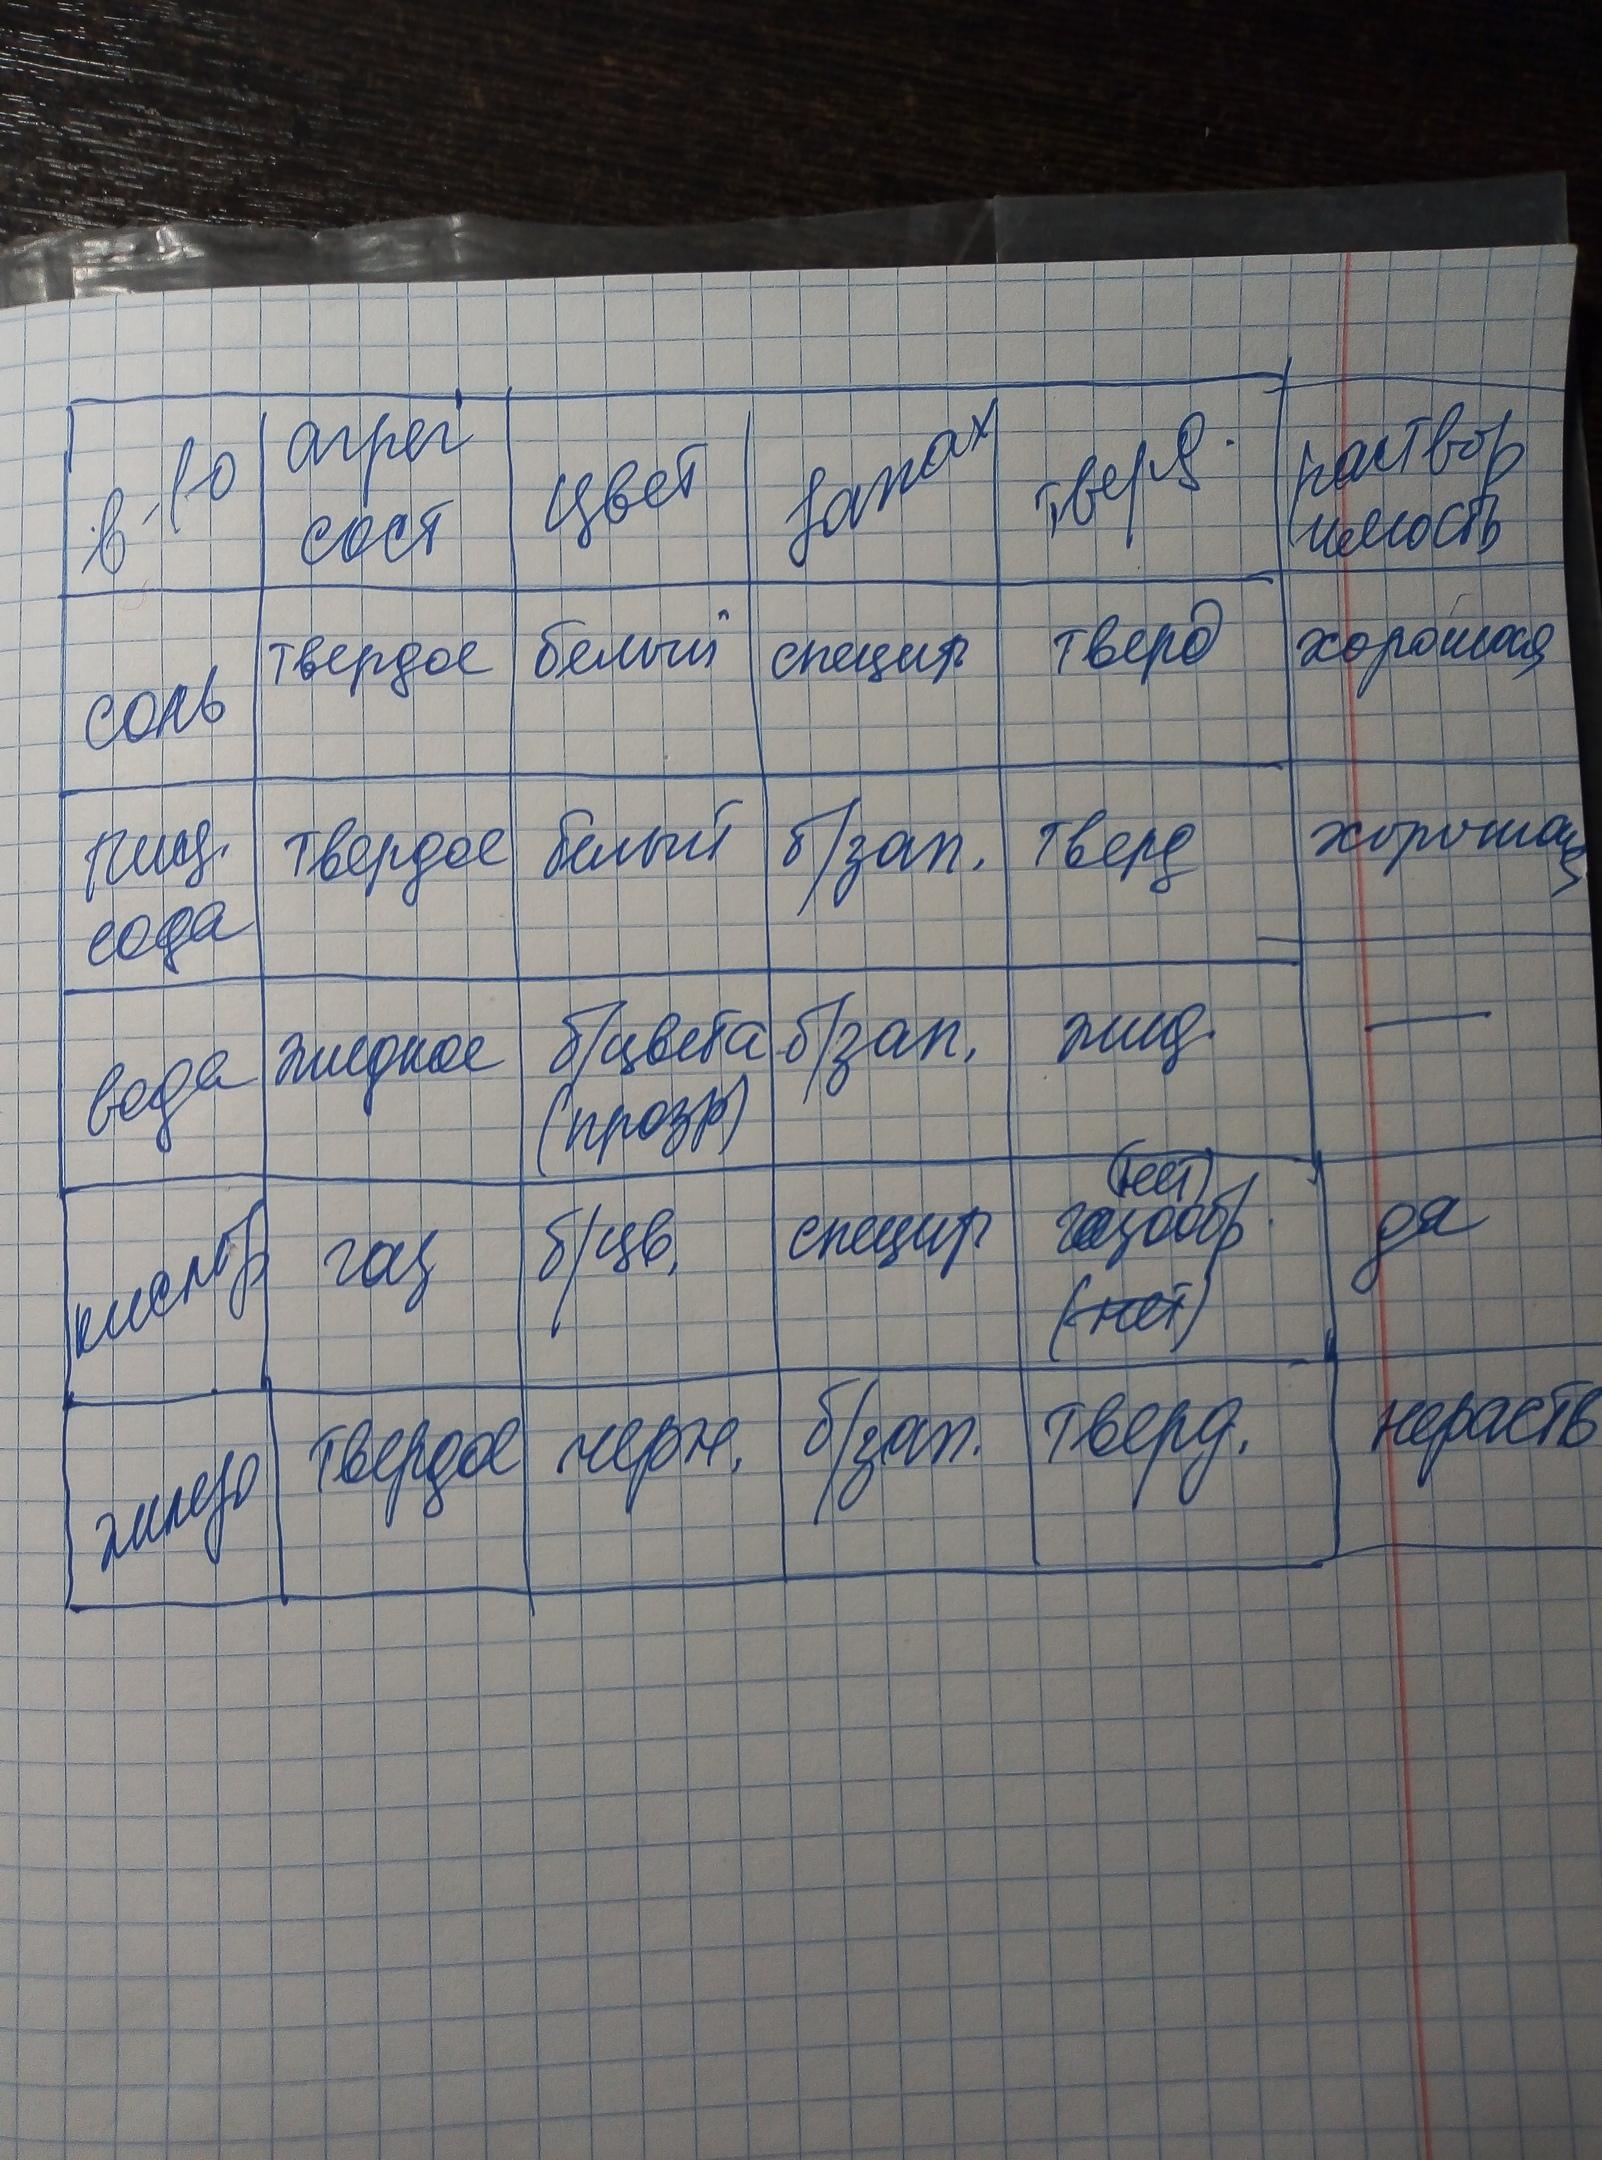 в-во агрег сост цвет запах тверд. раствор имость
соль твердое белый специф тверд хорошая
пищ. сода твердое белый б/зап. тверд хорошая
вода жидкое б/цвета (прозр) б/зап. жид. —
кислор газ б/цв. специф (нет) газообр. (нет) да
твердое черн. б/зап. тверд. нераств